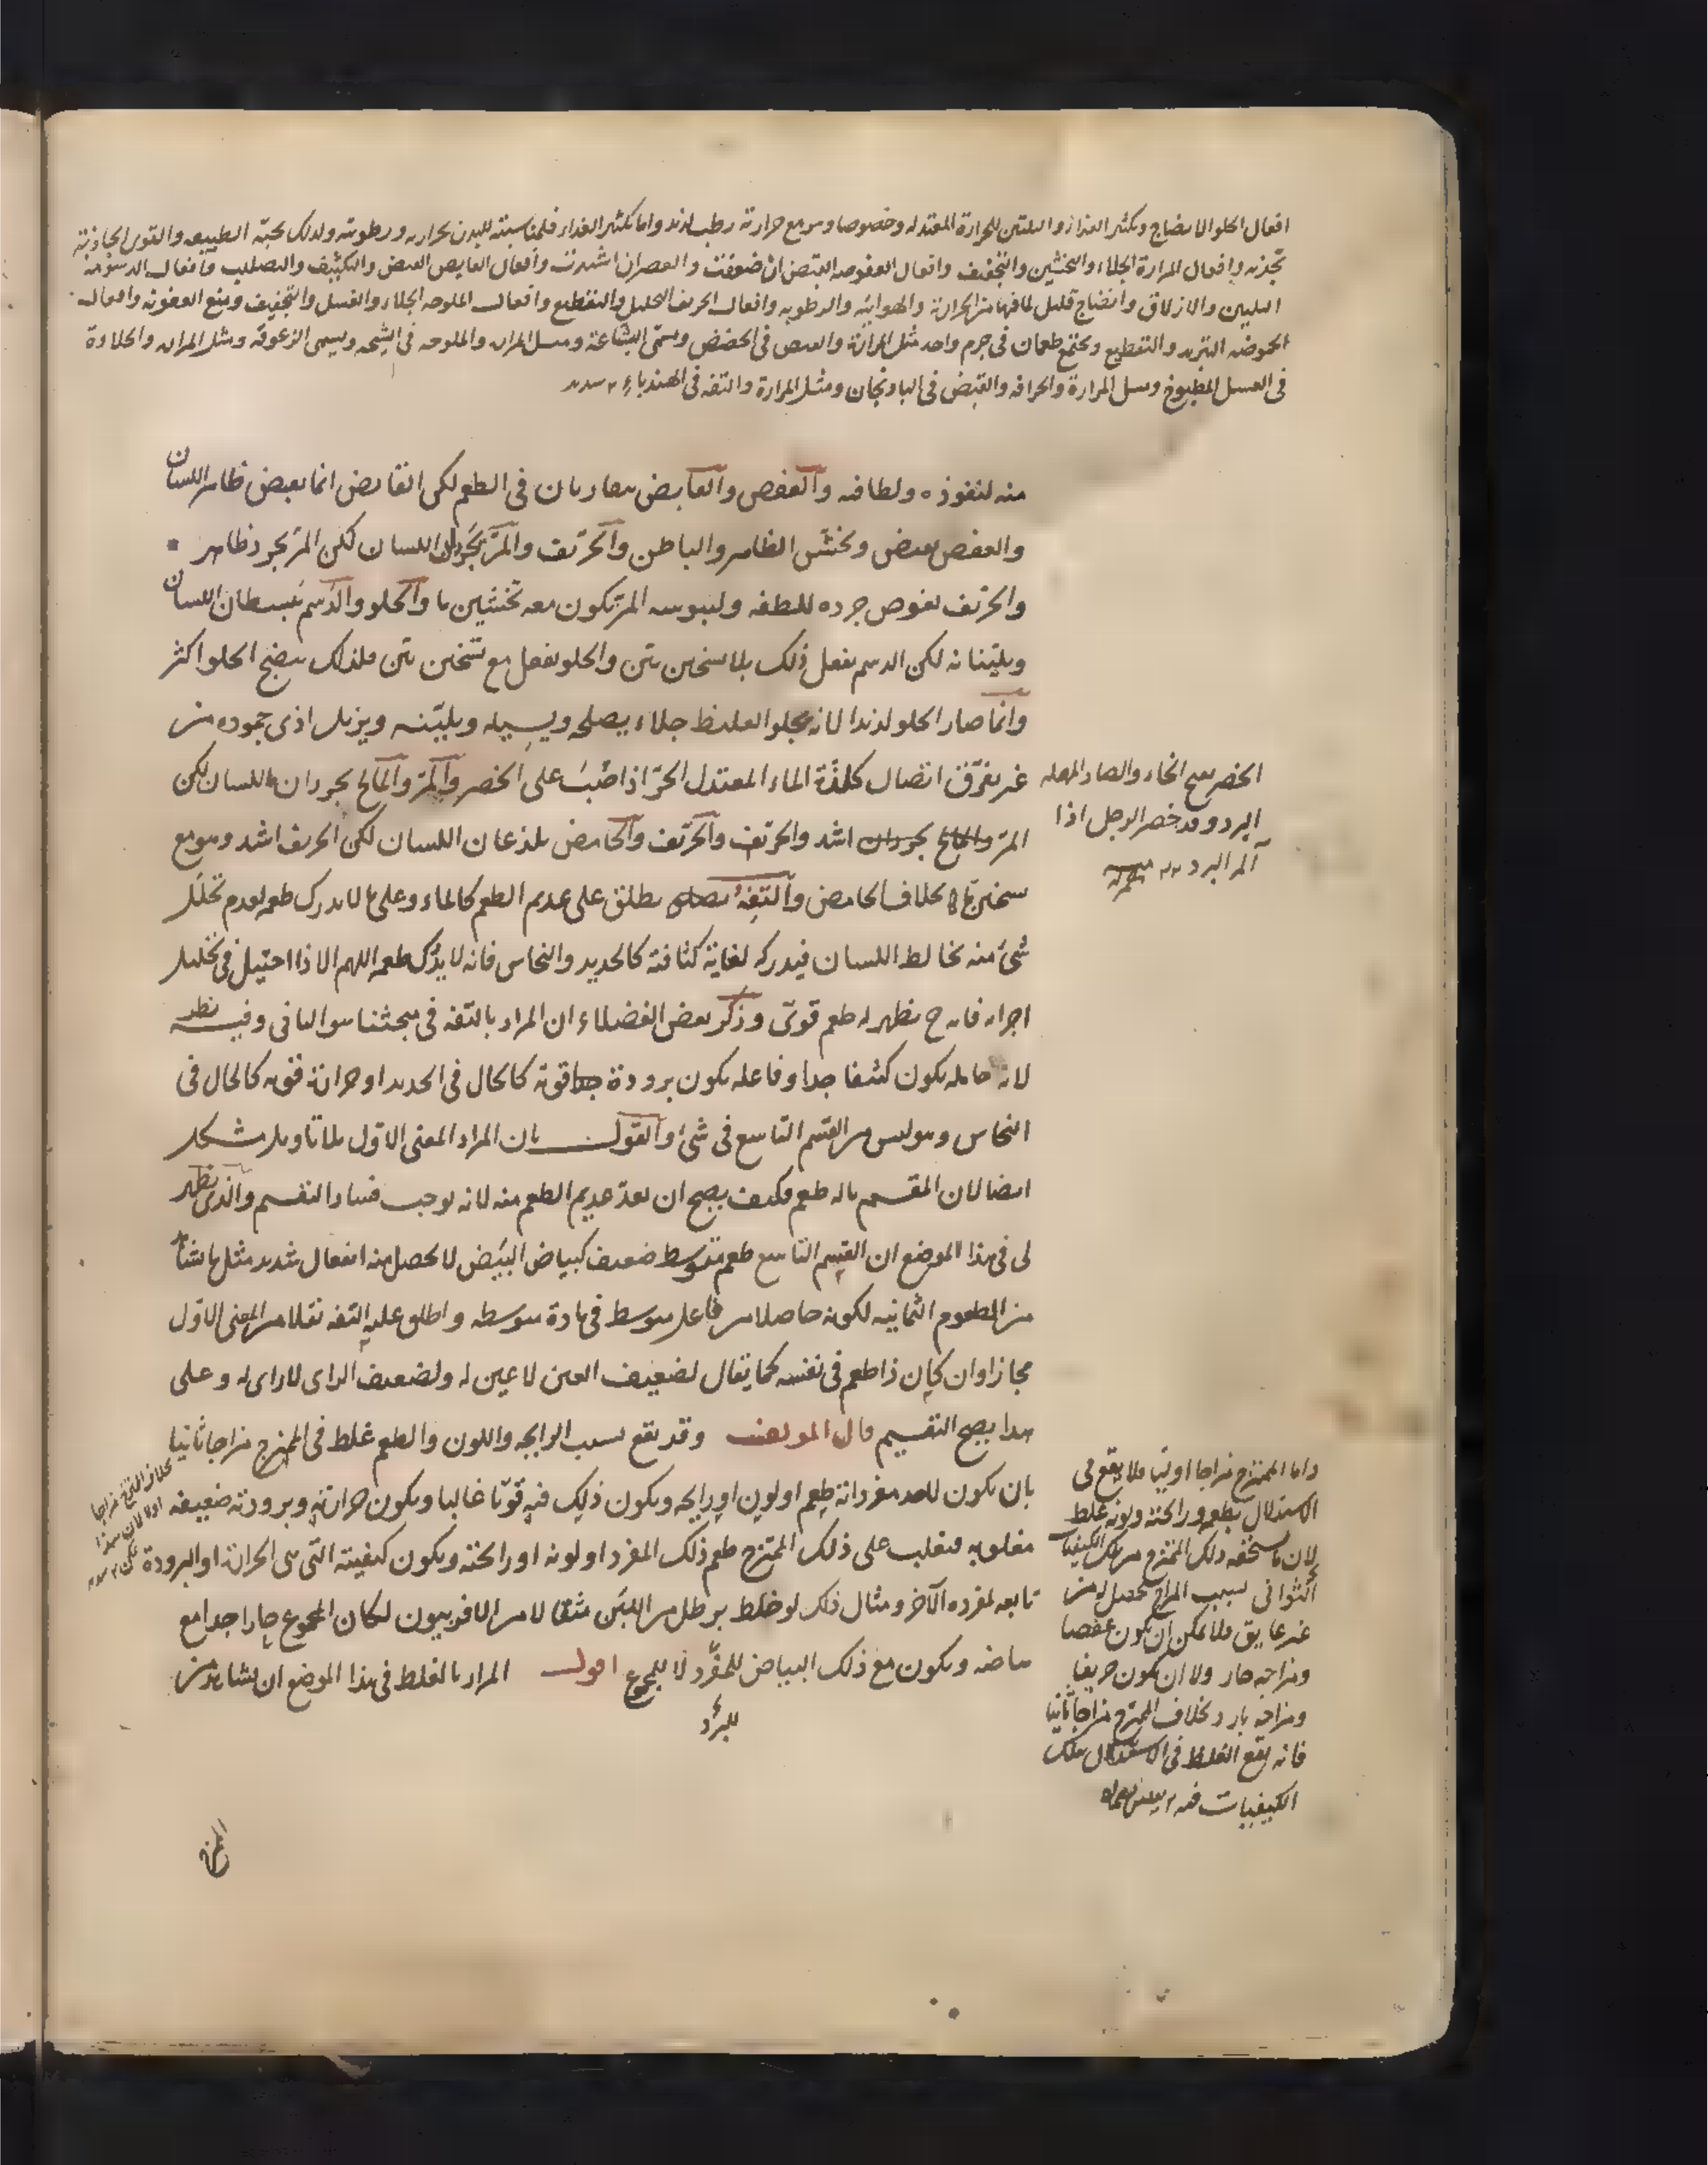 افعال الحلو الانضاج وتكثير الغذاء والتليين للحرارة المعتدلة وخصوصا وهو مع حرارته رطب لذيذ واما تكثير الغذاء فلمناسبته للبدن بحرارته ورطوبته ولذلك تحبه الطبيعة والقوى الجاذبة
تجذبه وافعال المرارة الجلاء والتخشين والتجفيف وافعال العفوصة القبض ان ضعفت والعصر ان اشتدت وافعال القابض القبض والتكثيف والتصليب وافعال الدسومة
التليين والازلاق وانضاج قليل لما فيها من الحرارة والهوائية والرطوبة وافعال الحريف التحليل والتقطيع وافعال الملوحة الجلاء والغسل والتجفيف ومنع العفونة وافعال
الحموضة التبريد والتقطيع وتجتمع طعمان في جرم واحد مثل المرارة والقبض في الحضض ويسمى البشاعة ومثل المرارة والملوحة في الشيحة ويسمى الزعوقة ومثل المرارة والحلاوة
في العسل المطبوخ ومثل المرارة والحرافة والقبض في الباذنجان ومثل المرارة والتفه في الهندباء
منه لنفوذه ولطافته والعفص والقابض متقاربان في الطعم لكن القابض انما يقبض ظاهر اللسان
والعفص يقبض ويخشن الظاهر والباطن والحريف والمر يجردان اللسان لكن المر يجرد ظاهره
والحريف يغوص جرده للطفه وليبوسة المر يكون معه تخشين ما والحلو والدسم يبسطان اللسان
ويلينانه لكن الدسم يفعل ذلك بلا تسخين بين والحلو يفعل مع تسخين بين فلذلك ينضج الحلو اكثر
وانما صار الحلو لذيذا لانه يجلو الغليظ جلاء يصلحه ويسيله ويلينه ويزيل اذى جموده من
غير تفرق اتصال كلذة الماء المعتدل الحر اذا صب على الخصر والمر والمالح يجردان اللسان لكن
المر والمالح يجردان اشد والحريف والحريف والحامض يلذعان اللسان لكن الحريف اشد وهو مع
تسخين بخلاف الحامض والتفه يطلق على عديم الطعم كالماء وعلى ما لا يدرك طعمه لعدم تحلل
شئ منه يخالط اللسان فيدركه لغاية كثافته كالحديد والنحاس فانه لا يدرك طعمه اللهم الا اذا احتيل في تحليل
اجزائه فانه ح يظهر له طعم قوي وذكر بعض الفضلاء ان المراد بالتفه في مبحثنا هو الثاني وفيه نظر
لانه حامله يكون كثيفا جدا وفاعله يكون برودة قوية كالحال في الحديد او حرارة قوية كالحال في
النحاس وهو ليس من القسم التاسع في شئ والقول بان المراد المعنى الاول بلا تاويل مشكل
ايضا لان المقسم ما له طعم فكيف يصح ان يعد عديم الطعم منه لانه يوجب فساد التقسيم والذي يظهر
لي في هذا الموضع ان القسم التاسع طعم متوسط ضعيف كبياض البيض لا يحصل منه انفعال شديد مثل ما ينشأ
من الطعوم الثمانية لكونه حاصلا من فاعل متوسط في مادة متوسطة واطلق عليه التفه نقلا من المعنى الاول
مجازا وان كان ذا طعم في نفسه كما يقال لضعيف العين لا عين له ولضعيف الراى لا راى له وعلى
هذا يصح التقسيم قال المولف وقد يقع بسبب الرايحة واللون والطعم غلط في الممتزج مزاجا ثانيا
بان يكون لاحد مفرداته طعم او لون او رايحة ويكون ذلك فيه قويا غالبا ويكون حرارته وبرودته ضعيفة
مغلوبة فتغلب على ذلك الممتزج طعم ذلك المفرد او لونه او رائحته ويكون كيفيته التي هي الحرارة او البرودة
تابعة لمفرده الآخر ومثال ذلك لو خلط برطل من اللبن مثقالا من الافربيون لكان المجموع حارا جدا مع
بياضه ويكون مع ذلك البياض للمفرد لا للمجموع اقول المراد بالغلط في هذا الموضع ان يشاهد من
للبرد
الخصر بفتح الخاء والصاد المهملة
البرد وقد خصر الرجل اذا
آلمه البرد
واما الممتزج مزاجا اوليا فلا يقع في
الاستدلال بطعمه ورائحته ولونه غلط
لان ما يستحقه ذلك الممتزج من تلك الكيفيات
الثواني بسبب المزاج تحصل له من
غير عايق فلا يمكن ان يكون عفصا
ومزاجه حار ولا ان يكون حريفا
ومزاجه بارد بخلاف الممتزج مزاجا ثانيا
فانه يقع الغلط في الاستدلال بتلك
الكيفيات فيه
بخلاف الممتزج مزاجا